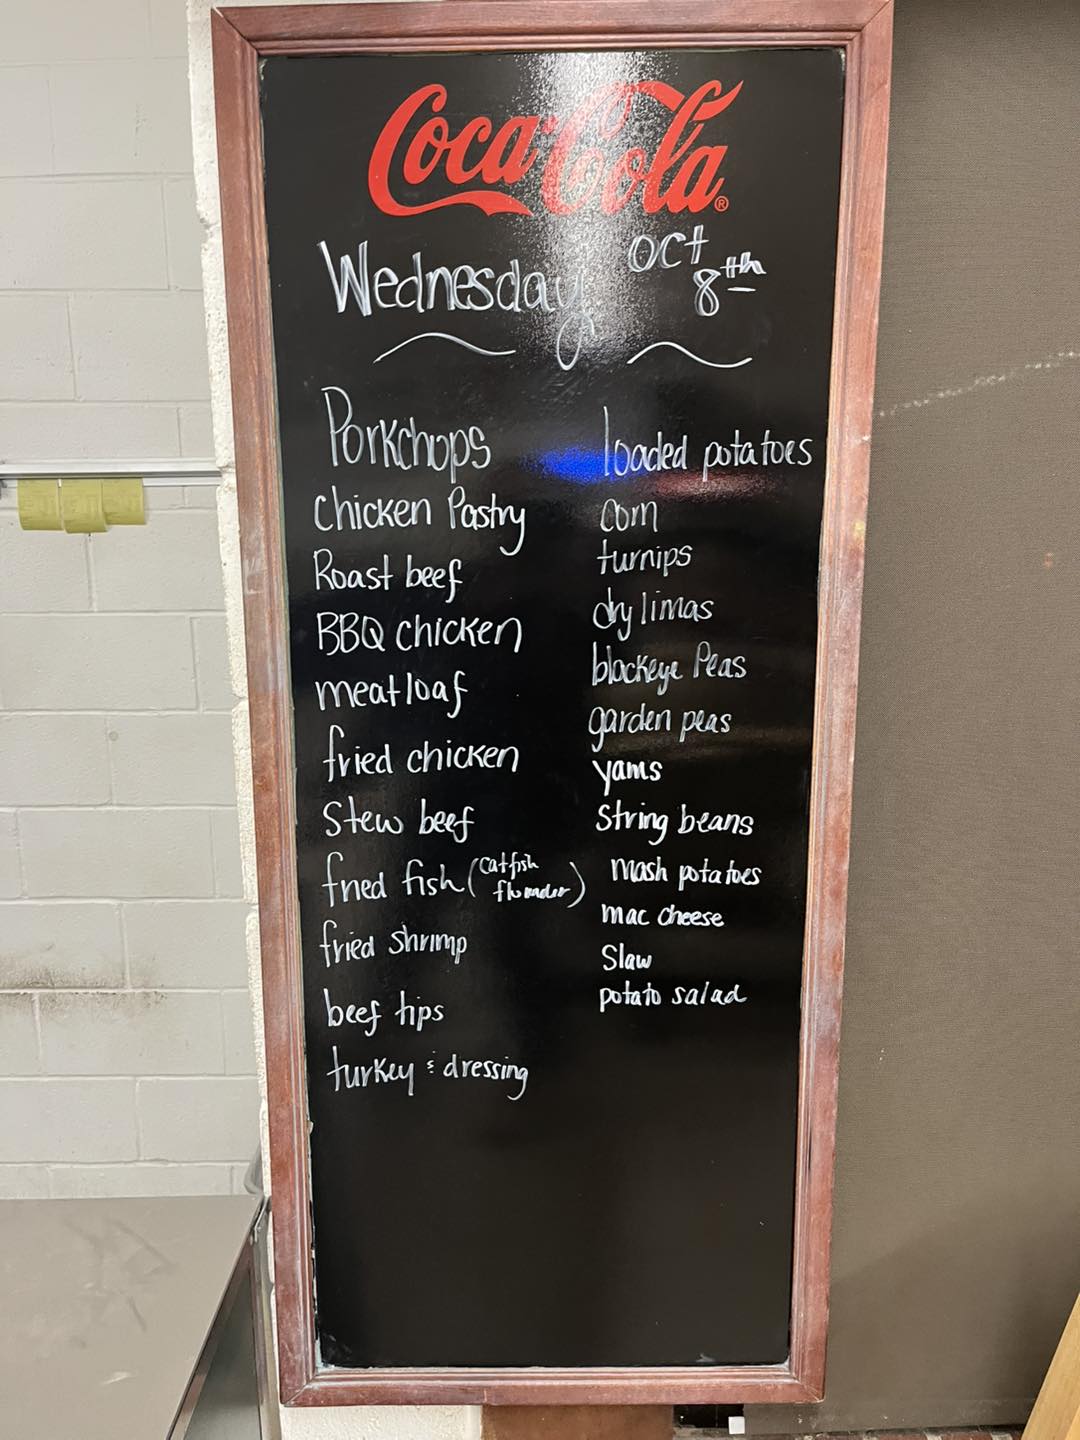 Coca-Cola®
Wednesday Oct 8th
Porkchops
Chicken Pastry
Roast beef
BBQ chicken
meatloaf
fried chicken
Stew beef
fried fish (catfish
flounder)
fried shrimp
beef tips
turkey & dressing
loaded potatoes
corn
turnips
dry limas
blackeye Peas
garden peas
yams
String beans
mash potatoes
mac cheese
Slaw
potato salad